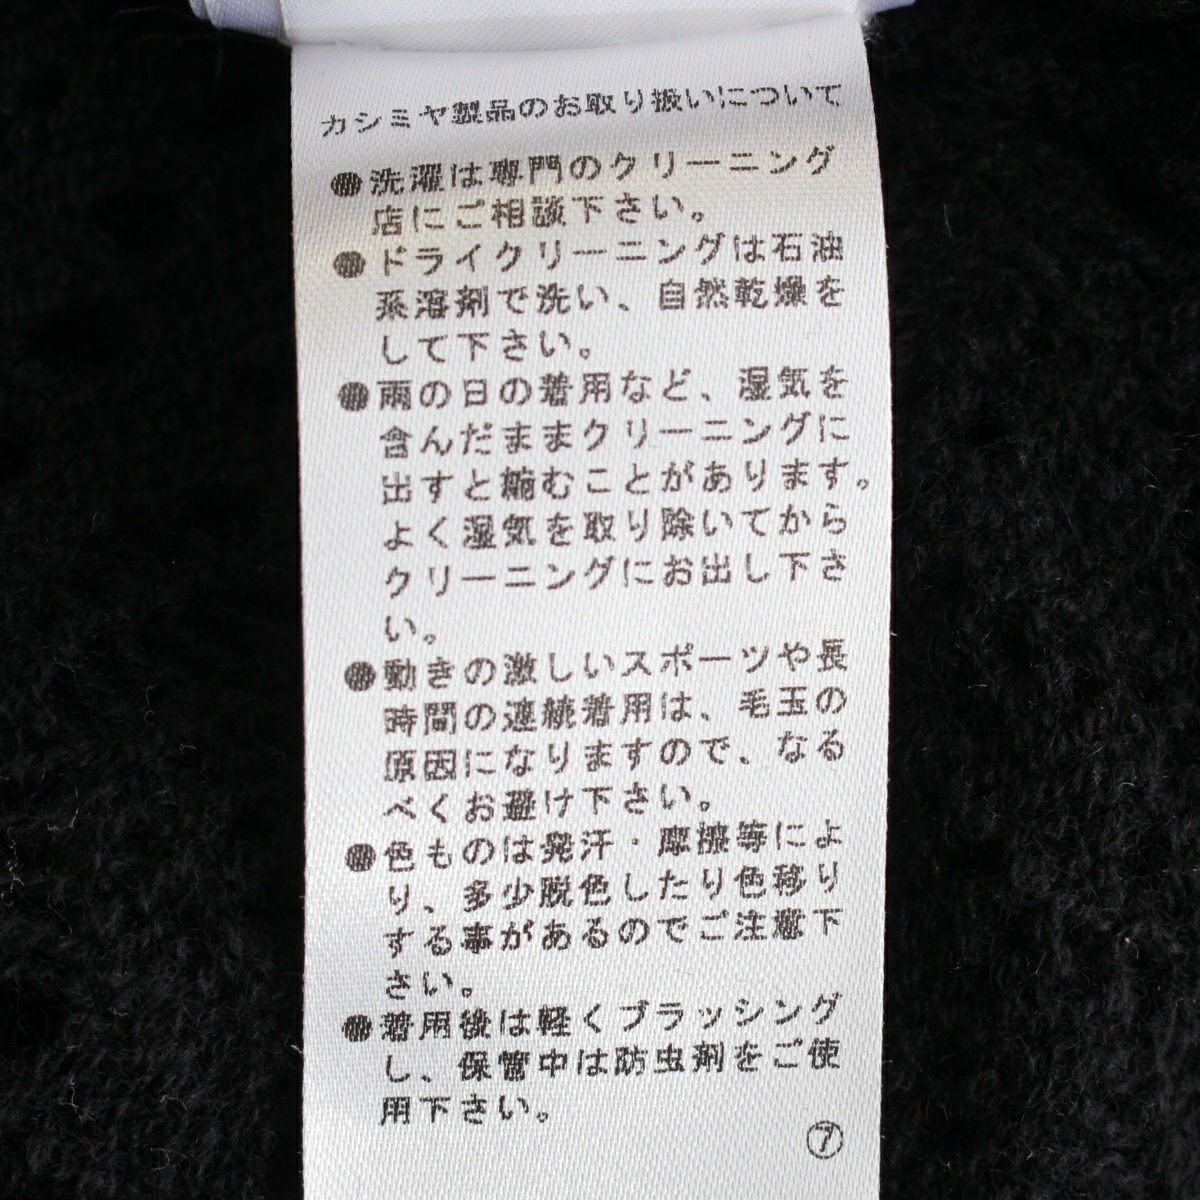 カシミヤ製品のお取り扱いについて
●洗濯は専門のクリーニング
店にご相談下さい。
●ドライクリーニングは石油
系溶剤で洗い、自然乾燥を
して下さい。
●雨の日の着用など、湿気を
含んだままクリーニングに
出すと縮むことがあります。
よく湿気を取り除いてから
クリーニングにお出し下さ
い。
●動きの激しいスポーツや長
時間の連続着用は、毛玉の
原因になりますので、なる
べくお避け下さい。
●色ものは発汗・摩擦等によ
り、多少脱色したり色移り
する事があるのでご注意下
さい。
●着用後は軽くブラッシング
し、保管中は防虫剤をご使
用下さい。
⑦